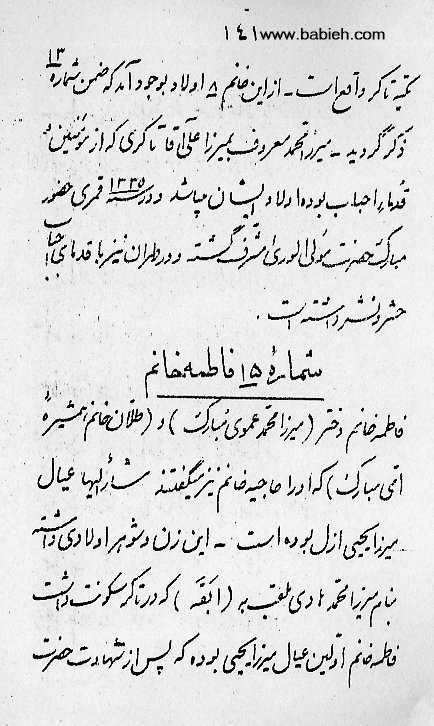 ۱۴۱ www.babieh.com
تکیه تاکر واقع است ـ از این خانم ۸ اولاد بوجود آمد که ضمن شماره ۱۳
ذکر گردید ـ میرزا محمد معروف بمیرزا علی آقا تاکری که از مؤمنین و
قدماء احباب بوده اولاد ایشان میباشد و در سنه ۱۳۳۵ قمری حضور
مبارک حضرت مولی الوری مشرف گشته و در طهران نیز با قدمای احباب
حشر و نشر داشته است .
شمارهٔ ۱۵ فاطمه خانم
فاطمه خانم دختر (میرزا محمد عموی مبارک) و (طلان خانم همشیرهٔ
امّی مبارک) که او را حاجیه خانم نیز میگفتند مشارٌالیها عیال
میرزا یحیی ازل بوده است ـ این زن و شوهر اولادی داشته
بنام میرزا محمد هادی ملقب به (ابقه) که در تاکر سکونت داشت
فاطمه خانم اولین عیال میرزا یحیی بوده که پس از شهادت حضرت